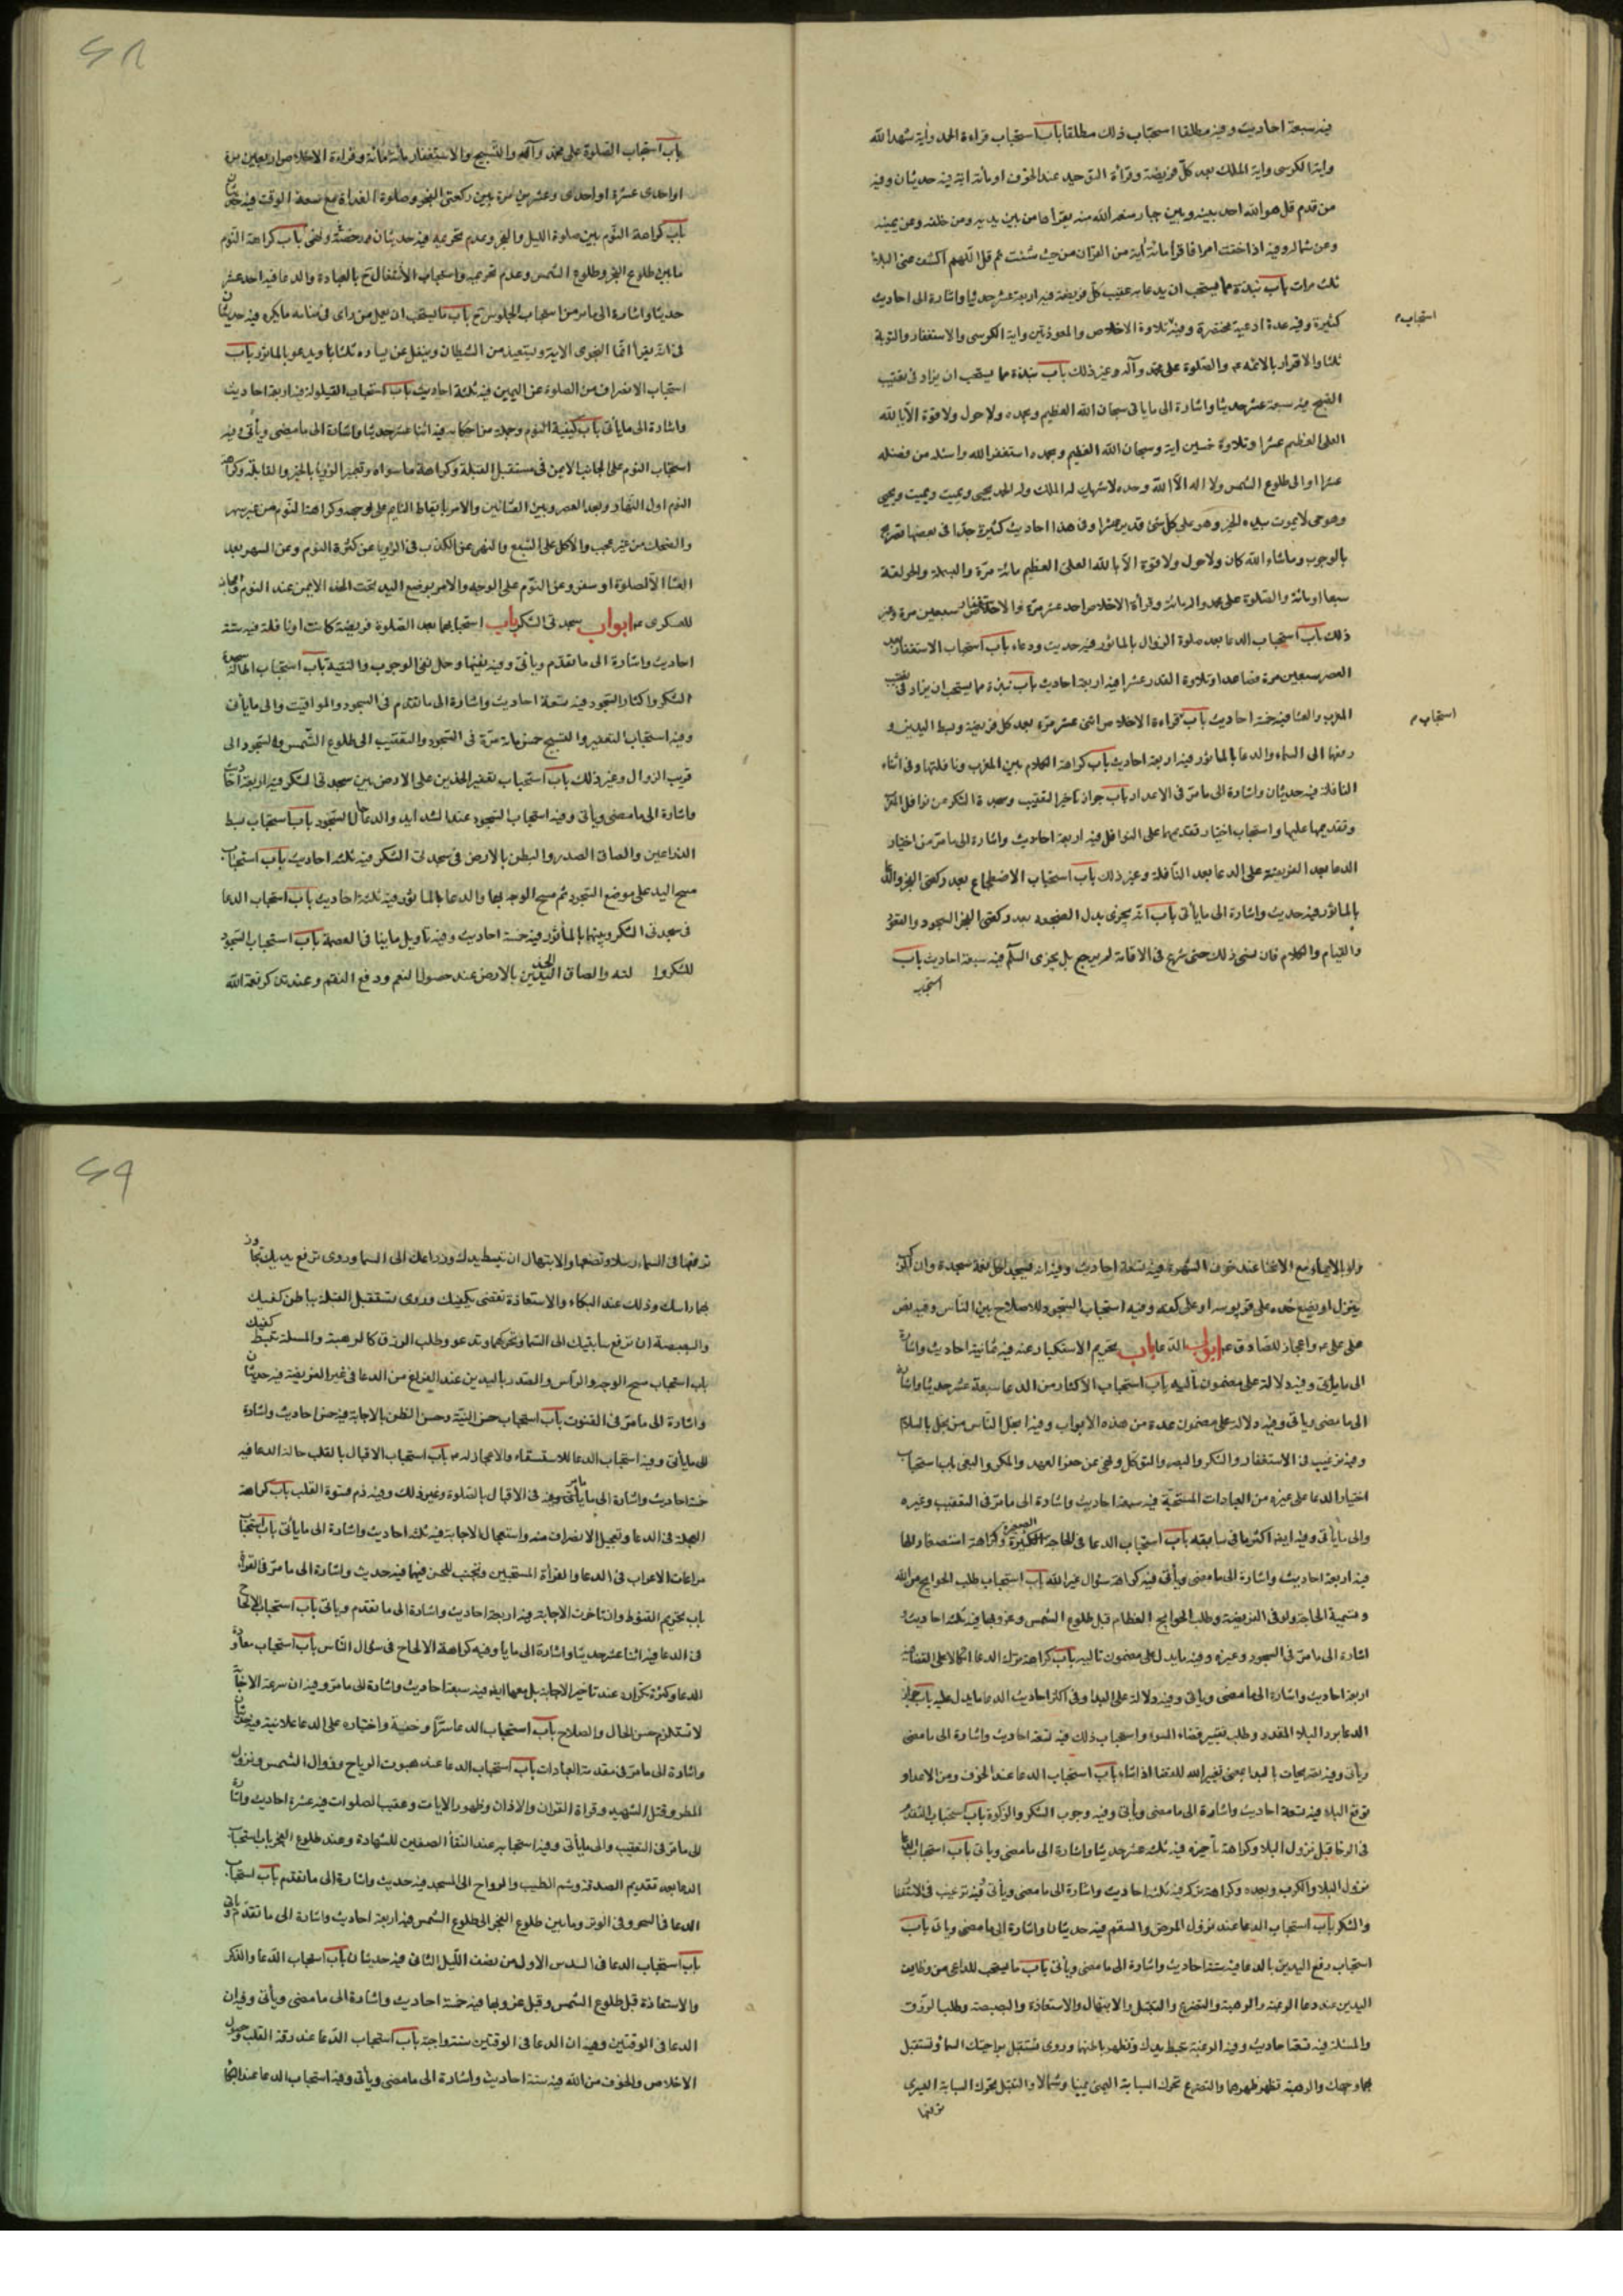 فيه سبعة احاديث وفيه مطلقا استحباب ذلك مطلقا باب استحباب قراءة الحمد واية شهد الله
واية الكرسى واية الملك بعد كل فريضة وقرأة التوحيد عند الخوف او مائة اية فيه حديثان وفيه
من قدم قل هو الله احد بينه وبين جبار منعه الله منه يقرأها من بين يديه ومن خلفه وعن يمينه
وعن شماله وفيه اذا خفت امرا فاقرأ مائة آية من القرآن من حيث شئت ثم قل اللهم اكشف عنى البلاء
ثلث مرات باب نبذة مما يستحب ان يدعا به عقيب كل فريضة فيه اربعة عشر حديثا واشارة الى احاديث
كثيرة وفيه عدة ادعية مختصرة وفيه تلاوة الاخلاص والمعوذتين واية الكرسى والاستغفار والتوبة
استحباب م
ثلثا والاقرار بالائمة ع والصلوة على محمد وآله وغير ذلك باب نبذة مما يستحب ان يزاد فى تعقيب
الصبح فيه سبعة عشر حديثا واشارة الى ما ياتى سبحان الله العظيم وبحمده ولا حول ولا قوة الا بالله
العلى العظيم عشرا وتلاوة خمسين اية وسبحان الله العظيم وبحمده استغفر الله واسئله من فضله
عشرا او الى طلوع الشمس ولا اله الا الله وحده لا شريك له الملك وله الحمد يحيى ويميت ويميت ويحيى
وهو حى لا يموت بيده الخير وهو على كل شئ قدير عشرا وفى هذا احاديث كثيرة جدا فى بعضها تصريح
بالوجوب وما شاء الله كان ولا حول ولا قوة الا بالله العلى العظيم مائة مرة والبسملة والحولقة
سبعا او مائة والصلوة على محمد واله مائة وقرأة الاخلاص احد عشر مرة والاستغفار سبعين مرة وغير
ذلك باب استحباب الدعا بعد صلوة الزوال بالماثور فيه حديث ودعاء باب استحباب الاستغفار بعد
العصر سبعين مرة فصاعدا وتلاوة القدر عشرا فيه اربعة احاديث باب نبذة مما يستحب ان يزاد فى تعقيب
المغرب والعشا فيه خمسة احاديث باب قراءة الاخلاص اثنى عشر مرة بعد كل فريضة وبسط اليدين و
استحباب م
رفعهما الى السماء والدعا بالماثور فيه اربعة احاديث باب كراهة الكلام بين المغرب ونافلتها وفى اثناء
النافلة فيه حديثان واشارة الى ما مر فى الاعداد باب جواز تاخير التعقيب وسجدة الشكر من نوافل المغرب
وتقديمهما عليها واستحباب اختيار تقديمهما على النوافل فيه اربعة احاديث واشارة الى ما مر من اختيار
الدعا بعد الفريضة على الدعا بعد النافلة وغير ذلك باب استحباب الاضطجاع بعد ركعتى الفجر والدعا
بالماثور فيه حديث واشارة الى ما يأتى باب انه يجزى بدل الضجعة بعد ركعتى الفجر السجود والقعود
والقيام والكلام فان نسى ذلك حتى شرع فى الاقامة لم يرجع بل يجزى السلم فيه سبعة احاديث باب
استحباب
باب استحباب الصلوة على محمد وآله والتسبيح والاستغفار مائة مائة وقراءة الاخلاص اربعين مرة
او احدى عشرة او احدى وعشرين مرة بين ركعتى الفجر وصلوة الغداة مع سعة الوقت فيه حديثان
باب كراهة النوم بين صلوة الليل والفجر وعدم تحريمه فيه حديثان رخصة ونهى باب كراهة النوم
ما بين طلوع الفجر وطلوع الشمس وعدم تحريمه واستحباب الاشتغال ح بالعبادة والدعا فيه احد عشر
حديثا واشارة الى ما مر من استحباب الجلوس ح باب ما يستحب ان يعمل من راى فى منامه ما يكره فيه حديثان
فى انه يقرأ انما النجوى الاية ويستعيذ من الشيطان ويتفل عن يساره ثلثا ويدعو بالماثور باب
استحباب الانصراف من الصلوة عن اليمين فيه ثلثة احاديث باب استحباب القيلولة فيه اربعة احاديث
واشارة الى ما يأتى باب كيفية النوم وجملة من احكامه فيه اثنا عشر حديثا واشارة الى ما مضى ويأتى وفيه
استحباب النوم على الجانب الايمن فى مستقبل القبلة وكراهة ما سواه وتعبير الرؤيا بالخير والقابلة وكراهة
النوم اول النهار وبعد العصر وبين العشائين والامر بايقاظ النايم على وجهه وكراهة النوم من غير سهر
والضحك من غير عجب والاكل على الشبع والنهى عن الكذب فى الرؤيا وعن كثرة النوم وعن السهر بعد
العشا الا لصلوة او سفر وعن النوم على الوجه والامر بوضع اليد تحت الخد الايمن عند النوم واعجاز
للعسكرى ع ابواب سجدتى الشكر باب استحبابهما بعد الصلوة فريضة كانت او نافلة فيه ستة
احاديث واشارة الى ما تقدم وياتى وفيه نفيها وحمل نفى الوجوب والتقية باب استحباب اطالة سجدة
الشكر واكثار السجود فيه تسعة احاديث واشارة الى ما تقدم فى السجود والمواقيت والى ما يأتى
وفيه استحباب التعفير والتسبيح خمسمائة مرة فى السجود والتعقيب الى طلوع الشمس والسجود الى
قريب الزوال وغير ذلك باب استحباب تعفير الخدين على الارض بين سجدتى الشكر فيه اربعة احاديث
واشارة الى ما مضى ويأتى وفيه استحباب السجود عند الشدايد والدعا حال السجود باب استحباب بسط
الذراعين والصاق الصدر والبطن بالارض فى سجدتى الشكر فيه ثلثة احاديث باب استحباب
مسح اليد على موضع السجود ثم مسح الوجه بها والدعا بالماثور فيه ثلثة احاديث باب استحباب الدعا
فى سجدتى الشكر وبينهما بالمأثور فيه خمسة احاديث وفيه تاويل ما ينافى العصمة باب استحباب السجود
للشكر والصاق الخدين بالارض عند حصول النعم ودفع النقم وعند تذكر نعمة الله
ولو بالايماء مع الانحنا عند خوف الشهرة فيه تسعة احاديث وفيه انه يسجد لكل نعمة سجدة وان
ينزل او يضع خده على قربوسه او على كفه وفيه استحباب السجود للاصلاح بين الناس وفيه نص
على على ع واعجاز للصادق ع ابواب الدعا باب تحريم الاستكبار عنه فيه ثمانية احاديث واشارة
الى ما يأتى وفيه دلالة على مضمون تاليه باب استحباب الاكثار من الدعا سبعة عشر حديثا واشارة
الى ما مضى وياتى وفيه دلالة على مضمون عدة من هذه الابواب وفيه ابخل الناس من بخل بالسلام
وفيه ترغيب فى الاستغفار والشكر والصبر والتوكل ونهى عن نقض العهد والمكر والبغى باب استحباب
اختيار الدعا على غيره من العبادات المستحبة فيه سبعة احاديث واشارة الى ما مر فى التعقيب وغيره
والى ما يأتى وفيه ايضا اكثر ما فى سابقه باب استحباب الدعا فى الحاجة الصغيرة والكبيرة وكراهة استصغارها
فيه اربعة احاديث واشارة الى ما مضى ويأتى فيه كراهة سؤال غير الله باب استحباب طلب الحوايج من الله
وتسمية الحاجة ولو فى الفريضة وطلب الحوايج العظام قبل طلوع الشمس وغروبها فيه ثلثة احاديث
اشارة الى ما مر فى السجود وغيره وفيه ما يدل على مضمون تاليه باب كراهة ترك الدعا اتكالا على القضا فيه
اربعة احاديث واشارة الى ما مضى وياتى وفيه دلالة على البدا وفى اكثر احاديث الدعا ما يدل عليه باب جواز
الدعا برد البلاء المقدر وطلب تغيير قضاء السوء واستحباب ذلك فيه تسعة احاديث واشارة الى ما مضى
ويأتى وفيه تصريحات بالبدا بمعنى تغيير الله للقضا اذا شاء باب استحباب الدعا عند الخوف ومن الاعداء و
توقع البلاء فيه تسعة احاديث واشارة الى ما مضى ويأتى وفيه وجوب الشكر والزكوة باب استحباب التقدم
فى الرخا قبل نزول البلاء وكراهة تأخيره فيه ثلثة عشر حديثا واشارة الى ما مضى وياتى باب استحباب الدعا
نزول البلاء والكرب وبعده وكراهة تركه فيه ثلثة احاديث واشارة الى ما مضى ويأتى فيه ترغيب فى الاستغفار
والشكر باب استحباب الدعا عند نزول المرض والسقم فيه حديثان واشارة الى ما مضى وياتى باب
استحباب رفع اليدين بالدعا فيه ستة احاديث واشارة الى ما مضى ويأتى باب ما يستحب للداعى من وظايف
اليدين عند دعا الرغبة والرهبة والتضرع والتبتل والابتهال والاستعاذة والبصبصة وطلب الرزق
والمسئلة فيه تسعة احاديث وفيه الرغبة تبسط يديك وتظهر باطنهما وروى تستقبل براحتيك السماء وتستقبل
بهما وجهك والرهبة تظهر ظهرهما والتضرع تحرك السبابة اليمنى يمينا وشمالا والتبتل تحرك السبابة اليسرى
ترفعها
ترفعها فى السماء رسلا وتضعها والابتهال ان تبسط يدك وذراعك الى السما وروى ترفع يديك تجاوز
بهما راسك وذلك عند البكاء والاستعاذة تفضى بكفيك وروى تستقبل القبلة بباطن كفيك
والبصبصة ان ترفع سبابتيك الى السما وتحركهما وتدعو وطلب الرزق كالرهبة والمسئلة تبسط كفيك
باب استحباب مسح الوجه والرأس والصدر باليدين عند الفراغ من الدعا فى غير الفريضة فيه حديثان
واشارة الى ما مر فى القنوت باب استحباب حسن النية وحسن الظن بالاجابة فيه خمس احاديث واشارة
الى ما يأتى وفيه استحباب الدعا للاستسقاء والاعجاز له ص باب استحباب الاقبال بالقلب حالة الدعا فيه
خمسة احاديث واشارة الى ما يأتى وما مر فى الاقبال بالصلوة وغير ذلك وفيه ذم قسوة القلب باب كراهة
العجلة فى الدعا وتعجيل الانصراف منه واستعجال الاجابة فيه ثلثة احاديث واشارة الى ما يأتى باب استحباب
مراعات الاعراب فى الدعا والقرأة المستحبين وتجنب اللحن فيهما فيه حديث واشارة الى ما مر فى القرأة
باب تحريم القنوط وان تاخرت الاجابة فيه اربعة احاديث واشارة الى ما تقدم وياتى باب استحباب الالحاح
فى الدعا فيه اثنا عشر حديثا واشارة الى ما يأتى وفيه كراهة الالحاح فى سؤال الناس باب استحباب معاودة
الدعا وكثرة تكراره عند تاخير الاجابة بل معها ايضا فيه سبعة احاديث واشارة الى ما مر وفيه ان سرعة الاجابة
لا تستلزم حسن الحال والصلاح باب استحباب الدعا سرا وخفية واختياره على الدعا علانية فيه حديثان
واشارة الى ما مر فى مقدمة العبادات باب استحباب الدعا عند هبوب الرياح وزوال الشمس ونزول
المطر وقتل الشهيد وقراة القران والاذان وظهور الايات وعقيب الصلوات فيه عشرة احاديث واشارة
الى ما مر فى التعقيب والى ما يأتى وفيه استحبابه عند التقا الصفين للشهادة وعند طلوع الفجر باب استحباب
الدعا بعد تقديم الصدقة وشم الطيب والرواح الى المسجد فيه حديث واشارة الى ما تقدم باب استحباب
الدعا فى السحر وفى الوتر وما بين طلوع الفجر الى طلوع الشمس فيه اربعة احاديث واشارة الى ما تقدم وياتى
باب استحباب الدعا فى السدس الاول من نصف الليل الثانى فيه حديثان باب استحباب الدعا والذكر
والاستعاذة قبل طلوع الشمس وقبل غروبها فيه خمسة احاديث واشارة الى ما مضى ويأتى وفيه ان
الدعا فى الوقتين وفيه ان الدعا فى الوقتين سنة واجبة باب استحباب الدعا عند رقة القلب وحصول
الاخلاص والخوف من الله فيه ستة احاديث واشارة الى ما مضى ويأتى وفيه استحباب الدعا عند البكا